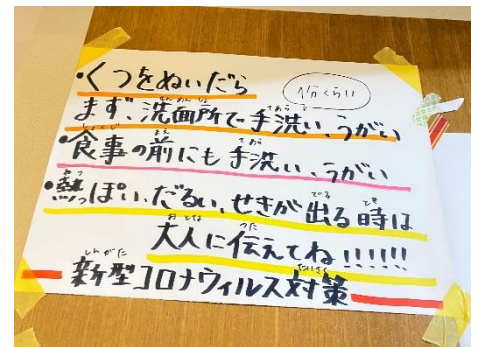 ・くつをぬいだら
1分くらい
まず、洗面所で手洗い、うがい
・食事の前にも手洗い、うがい
・熱っぽい、だるい、せきが出る時は
大人に伝えてね!!!!!!
新型コロナウィルス対策